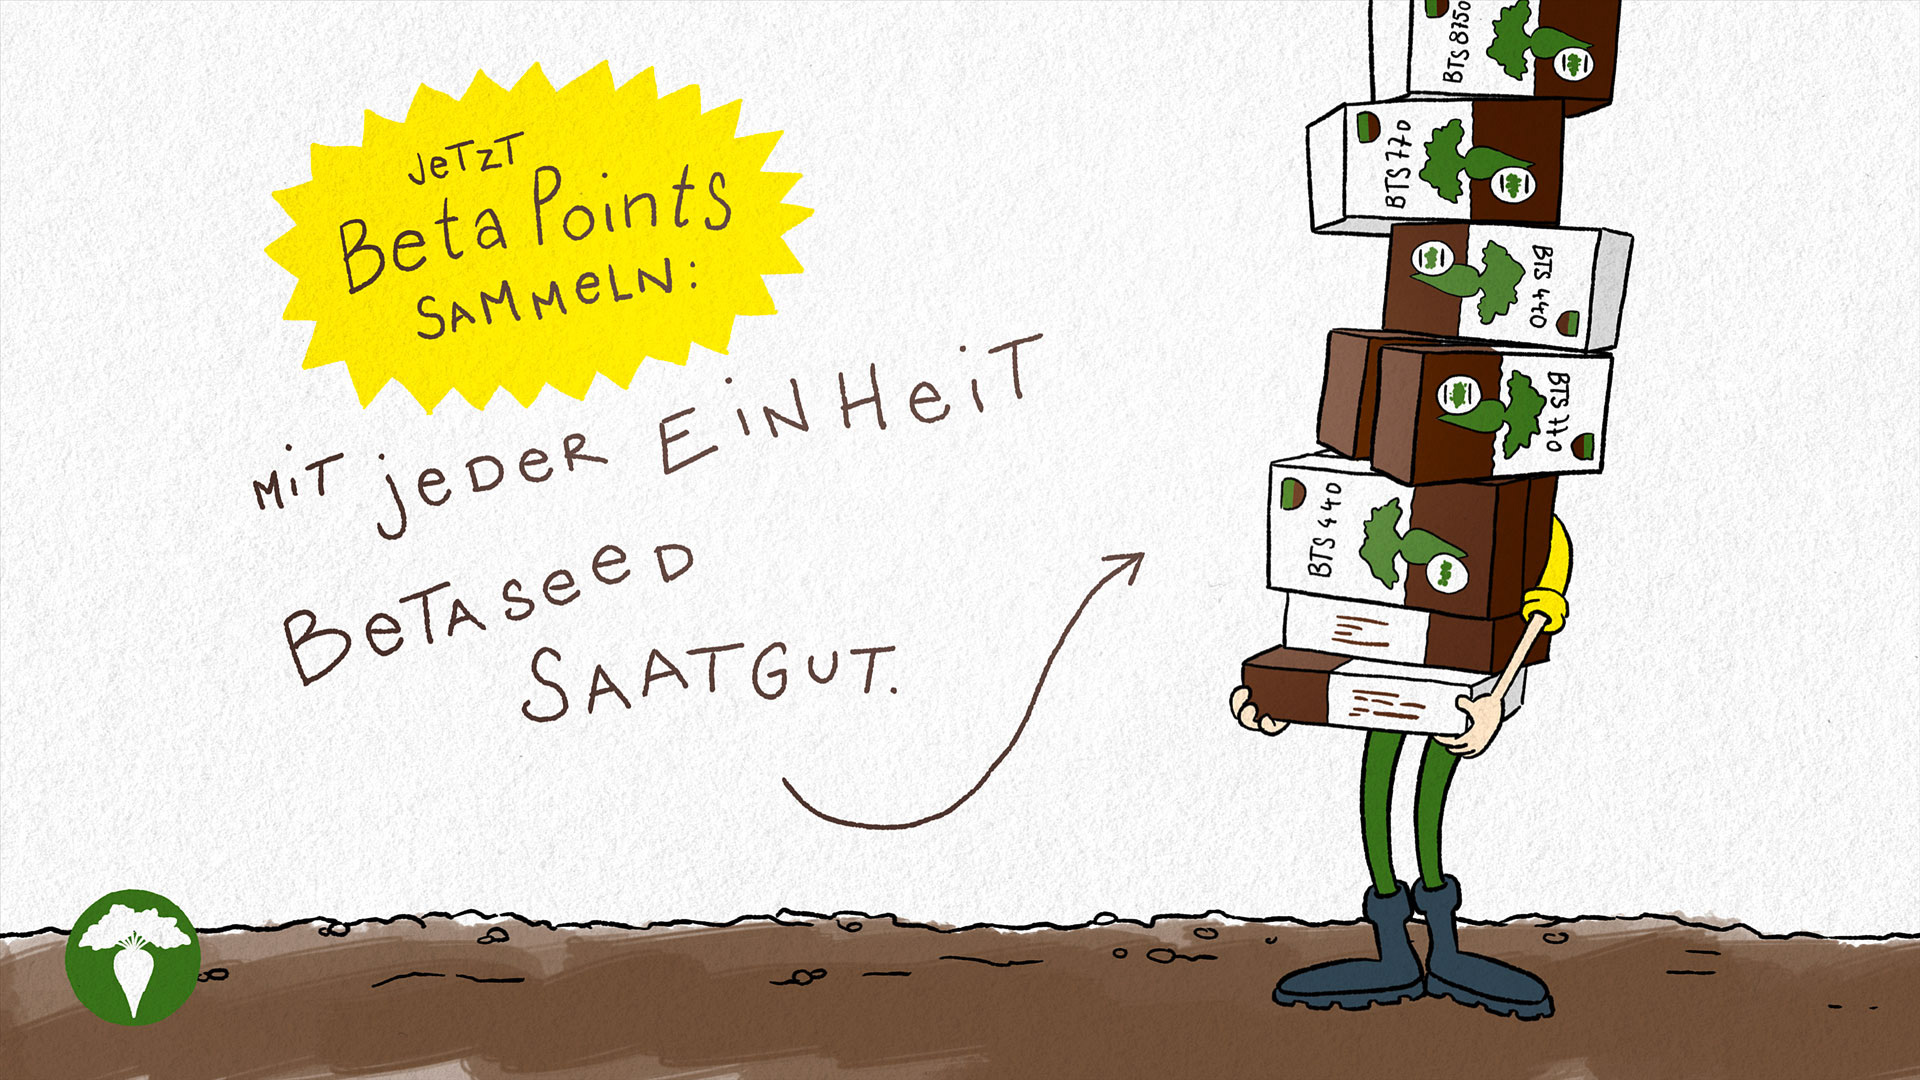 JETZT
Beta Points
SAMMELN:
MIT JEDER EINHEIT
BETASEED
SAATGUT.
BTS 8750
BTS 770
BTS 440
BTS 770
BTS 440